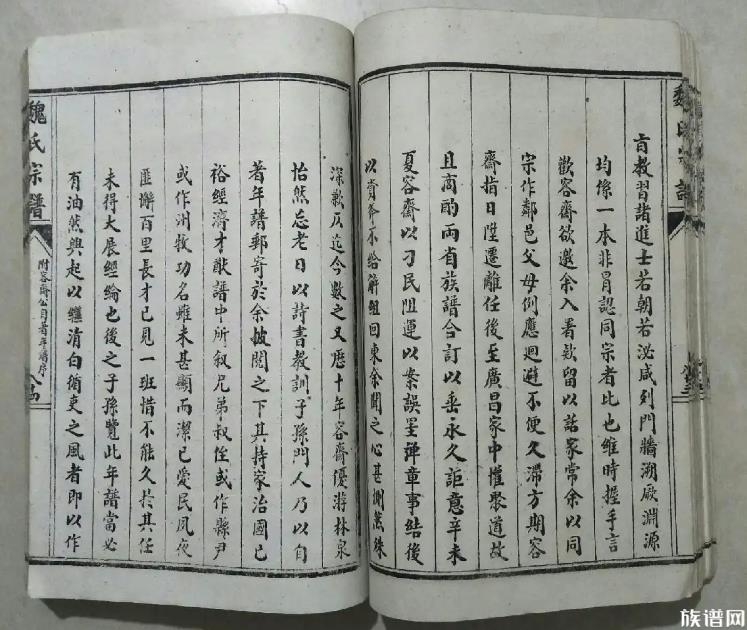 肓教習諸進士若朝若泌咸列門牆溯厥淵源
均係一本非冒認同宗者此也維時握手言
歡容齋欲邀余入署款留以話家常余以同
宗作鄰邑父母例應迴避不便久滯方期容
齋指日陞遷離任後至廣昌家中懽聚道故
且商酌兩省族譜合訂以垂永久詎意辛未
夏容齋以刁民阻運以案誤罣弹章事結後
以資斧不給解組回東余聞之心甚惻焉殊
深歉仄迄今數之又歷十年容齋優游林泉
怡然忘老日以詩書教訓子孫門人乃以自
著年譜郵寄於余披閱之下其持家治國已
裕經濟才猷譜中所叙兄弟叔侄或作縣尹
或作州牧功名雖未甚顯而潔已愛民夙夜
匪懈百里長才已見一班惜不能久於其任
未得大展經綸也後之子孫覽此年譜當必
有油然興起以繼清白循吏之風者即以作
魏氏宗譜
附容齋公自著年譜序
魏氏宗譜
族谱网